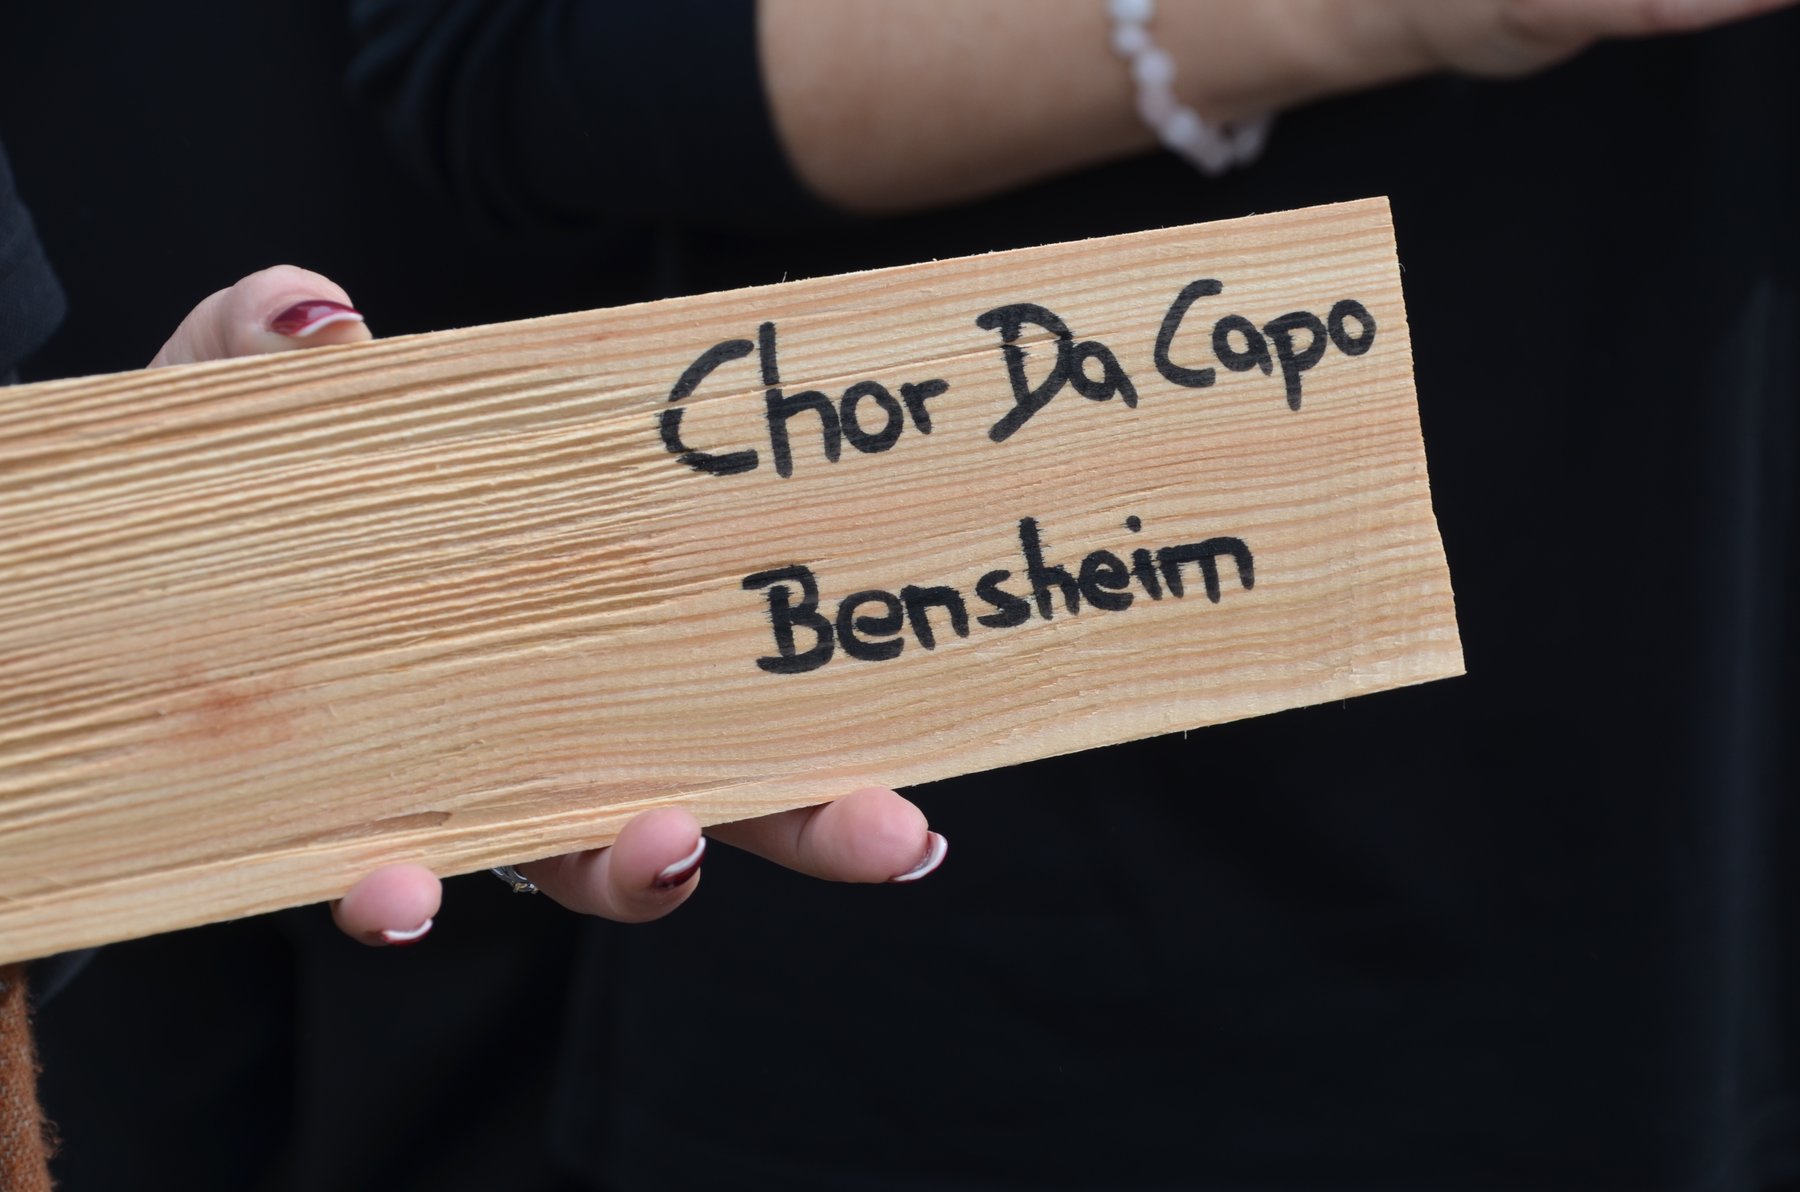 Chor Da Capo
Bensheim